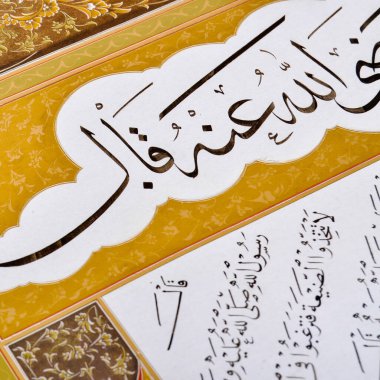 الله عنه قال
قال
رسول الله صلى الله عليه و
لا تتخذوا الضيعة فترغبوا في